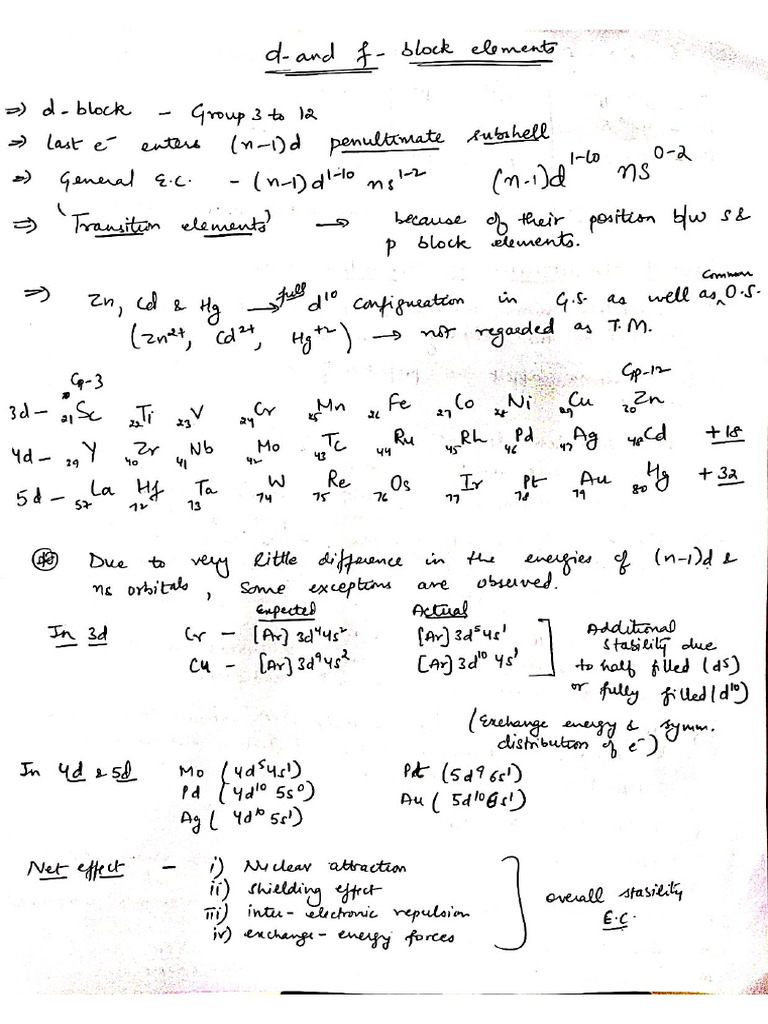 d- and f- block elements
⇒ d-block - Group 3 to 12
⇒ last e⁻ enters (n-1)d penultimate subshell
⇒ General E.C. - (n-1)d¹⁻¹⁰ ns¹⁻² (n-1)d¹⁻¹⁰ ns⁰⁻²
⇒ 'Transition elements' → because of their position b/w s &
p block elements.
⇒ Zn, Cd & Hg → full d¹⁰ configuration in G.S. as well as common O.S.
(Zn²⁺, Cd²⁺, Hg⁺²) → not regarded as T.M.
Gp-3 Gp-12
3d - ₂₁Sc ₂₂Ti ₂₃V ₂₄Cr ₂₅Mn ₂₆Fe ₂₇Co ₂₈Ni ₂₉Cu ₃₀Zn
4d - ₃₉Y ₄₀Zr ₄₁Nb ₄₂Mo ₄₃Tc ₄₄Ru ₄₅Rh ₄₆Pd ₄₇Ag ₄₈Cd +18
5d - ₅₇La ₇₂Hf ₇₃Ta ₇₄W ₇₅Re ₇₆Os ₇₇Ir ₇₈Pt ₇₉Au ₈₀Hg + 32
Due to very little difference in the energies of (n-1)d &
ns orbitals, some exceptions are observed.
Expected Actual
In 3d Cr - [Ar] 3d⁴4s² [Ar] 3d⁵4s¹
Cu - [Ar] 3d⁹4s² [Ar] 3d¹⁰ 4s¹
Additional
stability due
to half filled (d⁵)
or fully filled (d¹⁰)
(Exchange energy & symm.
distribution of e⁻)
In 4d & 5d Mo (4d⁵4s¹) Pt (5d⁹6s¹)
Pd (4d¹⁰ 5s⁰) Au (5d¹⁰6s¹)
Ag (4d¹⁰ 5s¹)
Net effect - i) Nuclear attraction
ii) shielding effect
iii) inter-electronic repulsion
iv) exchange-energy forces
overall stability
E.C.